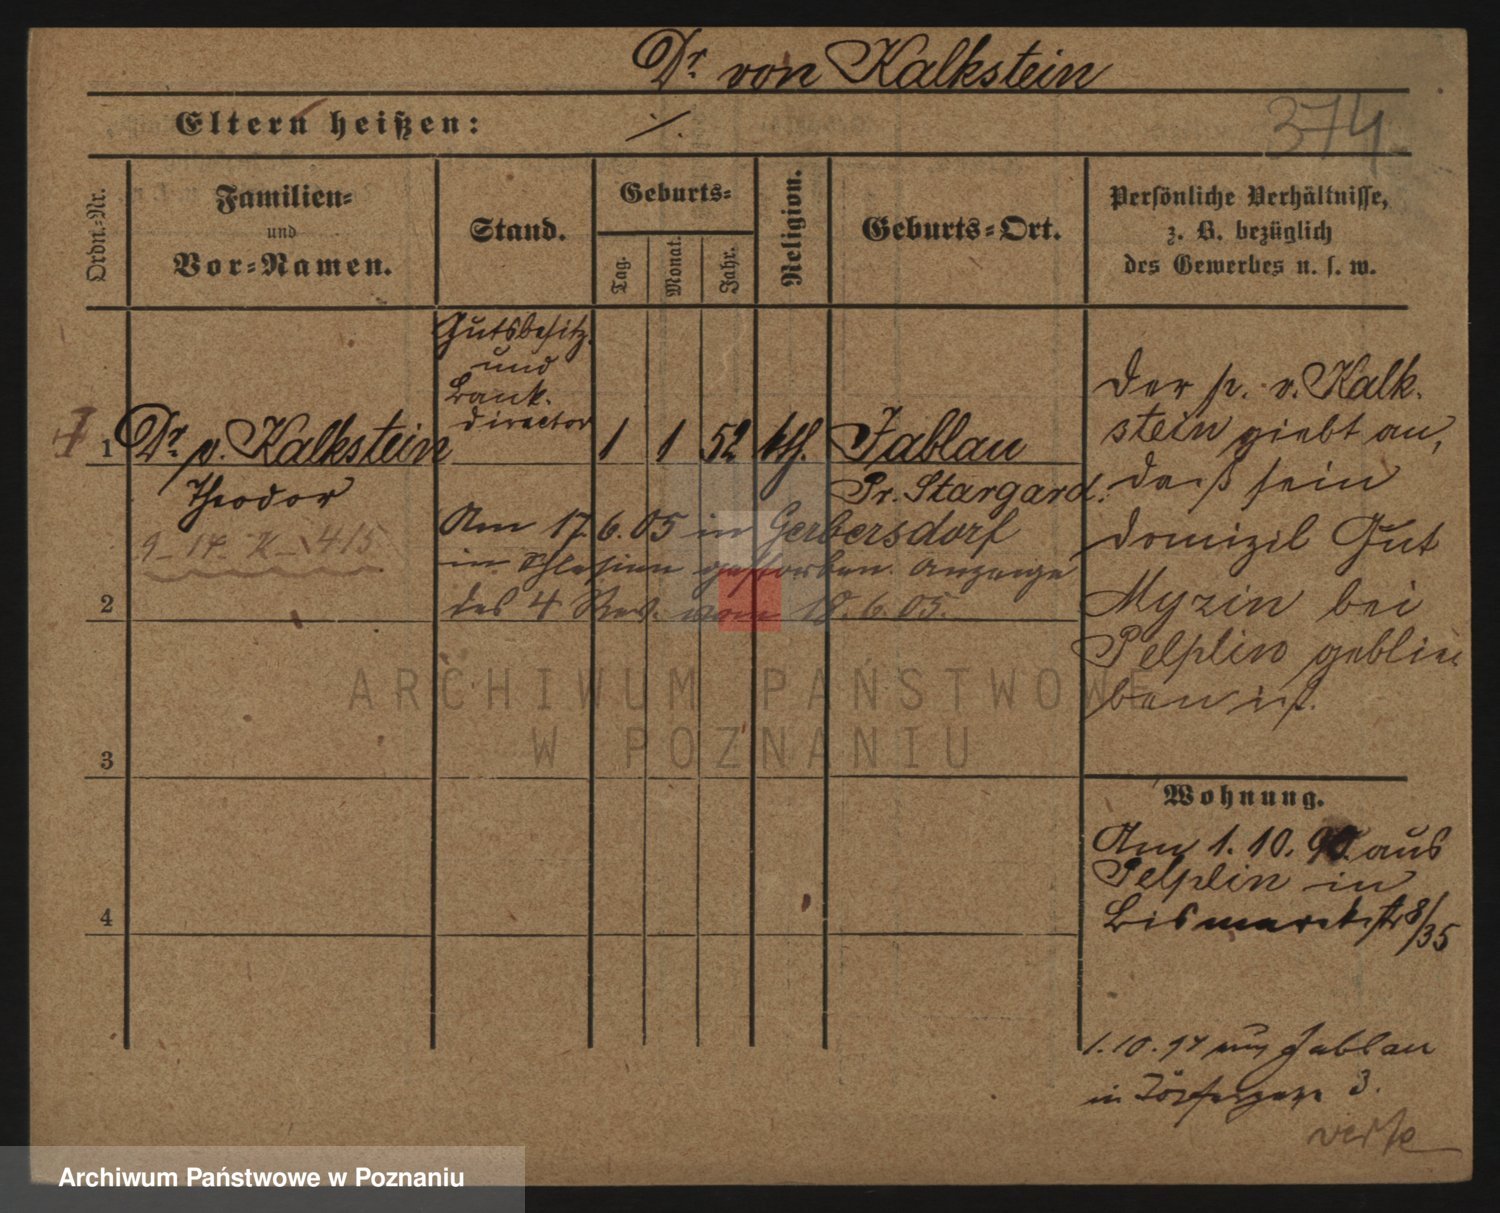 Dr. von Kalkstein
Eltern heißen: ./.
374
Ordn.=Nr.
Familien=
und
Vor=Namen.
Stand.
Geburts=
Tag.
Monat.
Jahr.
Religion.
Geburts=Ort.
Persönliche Verhältnisse,
z. B. bezüglich
des Gewerbes u. s. w.
Gutsbesitz.
und
Bank.
director
1 Dr. v. Kalkstein 1 1 52 kth. Jablau
Theodor
Pr. Stargard.
9_ 14 K_ 415
Am 17.6.05 in Gerbersdorf
in Schlesien gestorben. Anzeige
des 4 Rev. vom 18.6.05.
2
3
4
Der p. v. Kalk.
stein giebt an,
daß sein
Domizil Gut
Myzin bei
Pelplin geblie
ben ist.
Wohnung.
Am 1. 10. 90. aus
Pelplin in
Bismarckstr 8/35
1.10.94 Jablau
in 3.
verte
ARCHIWUM PAŃSTWOWE
W POZNANIU
Archiwum Państwowe w Poznaniu